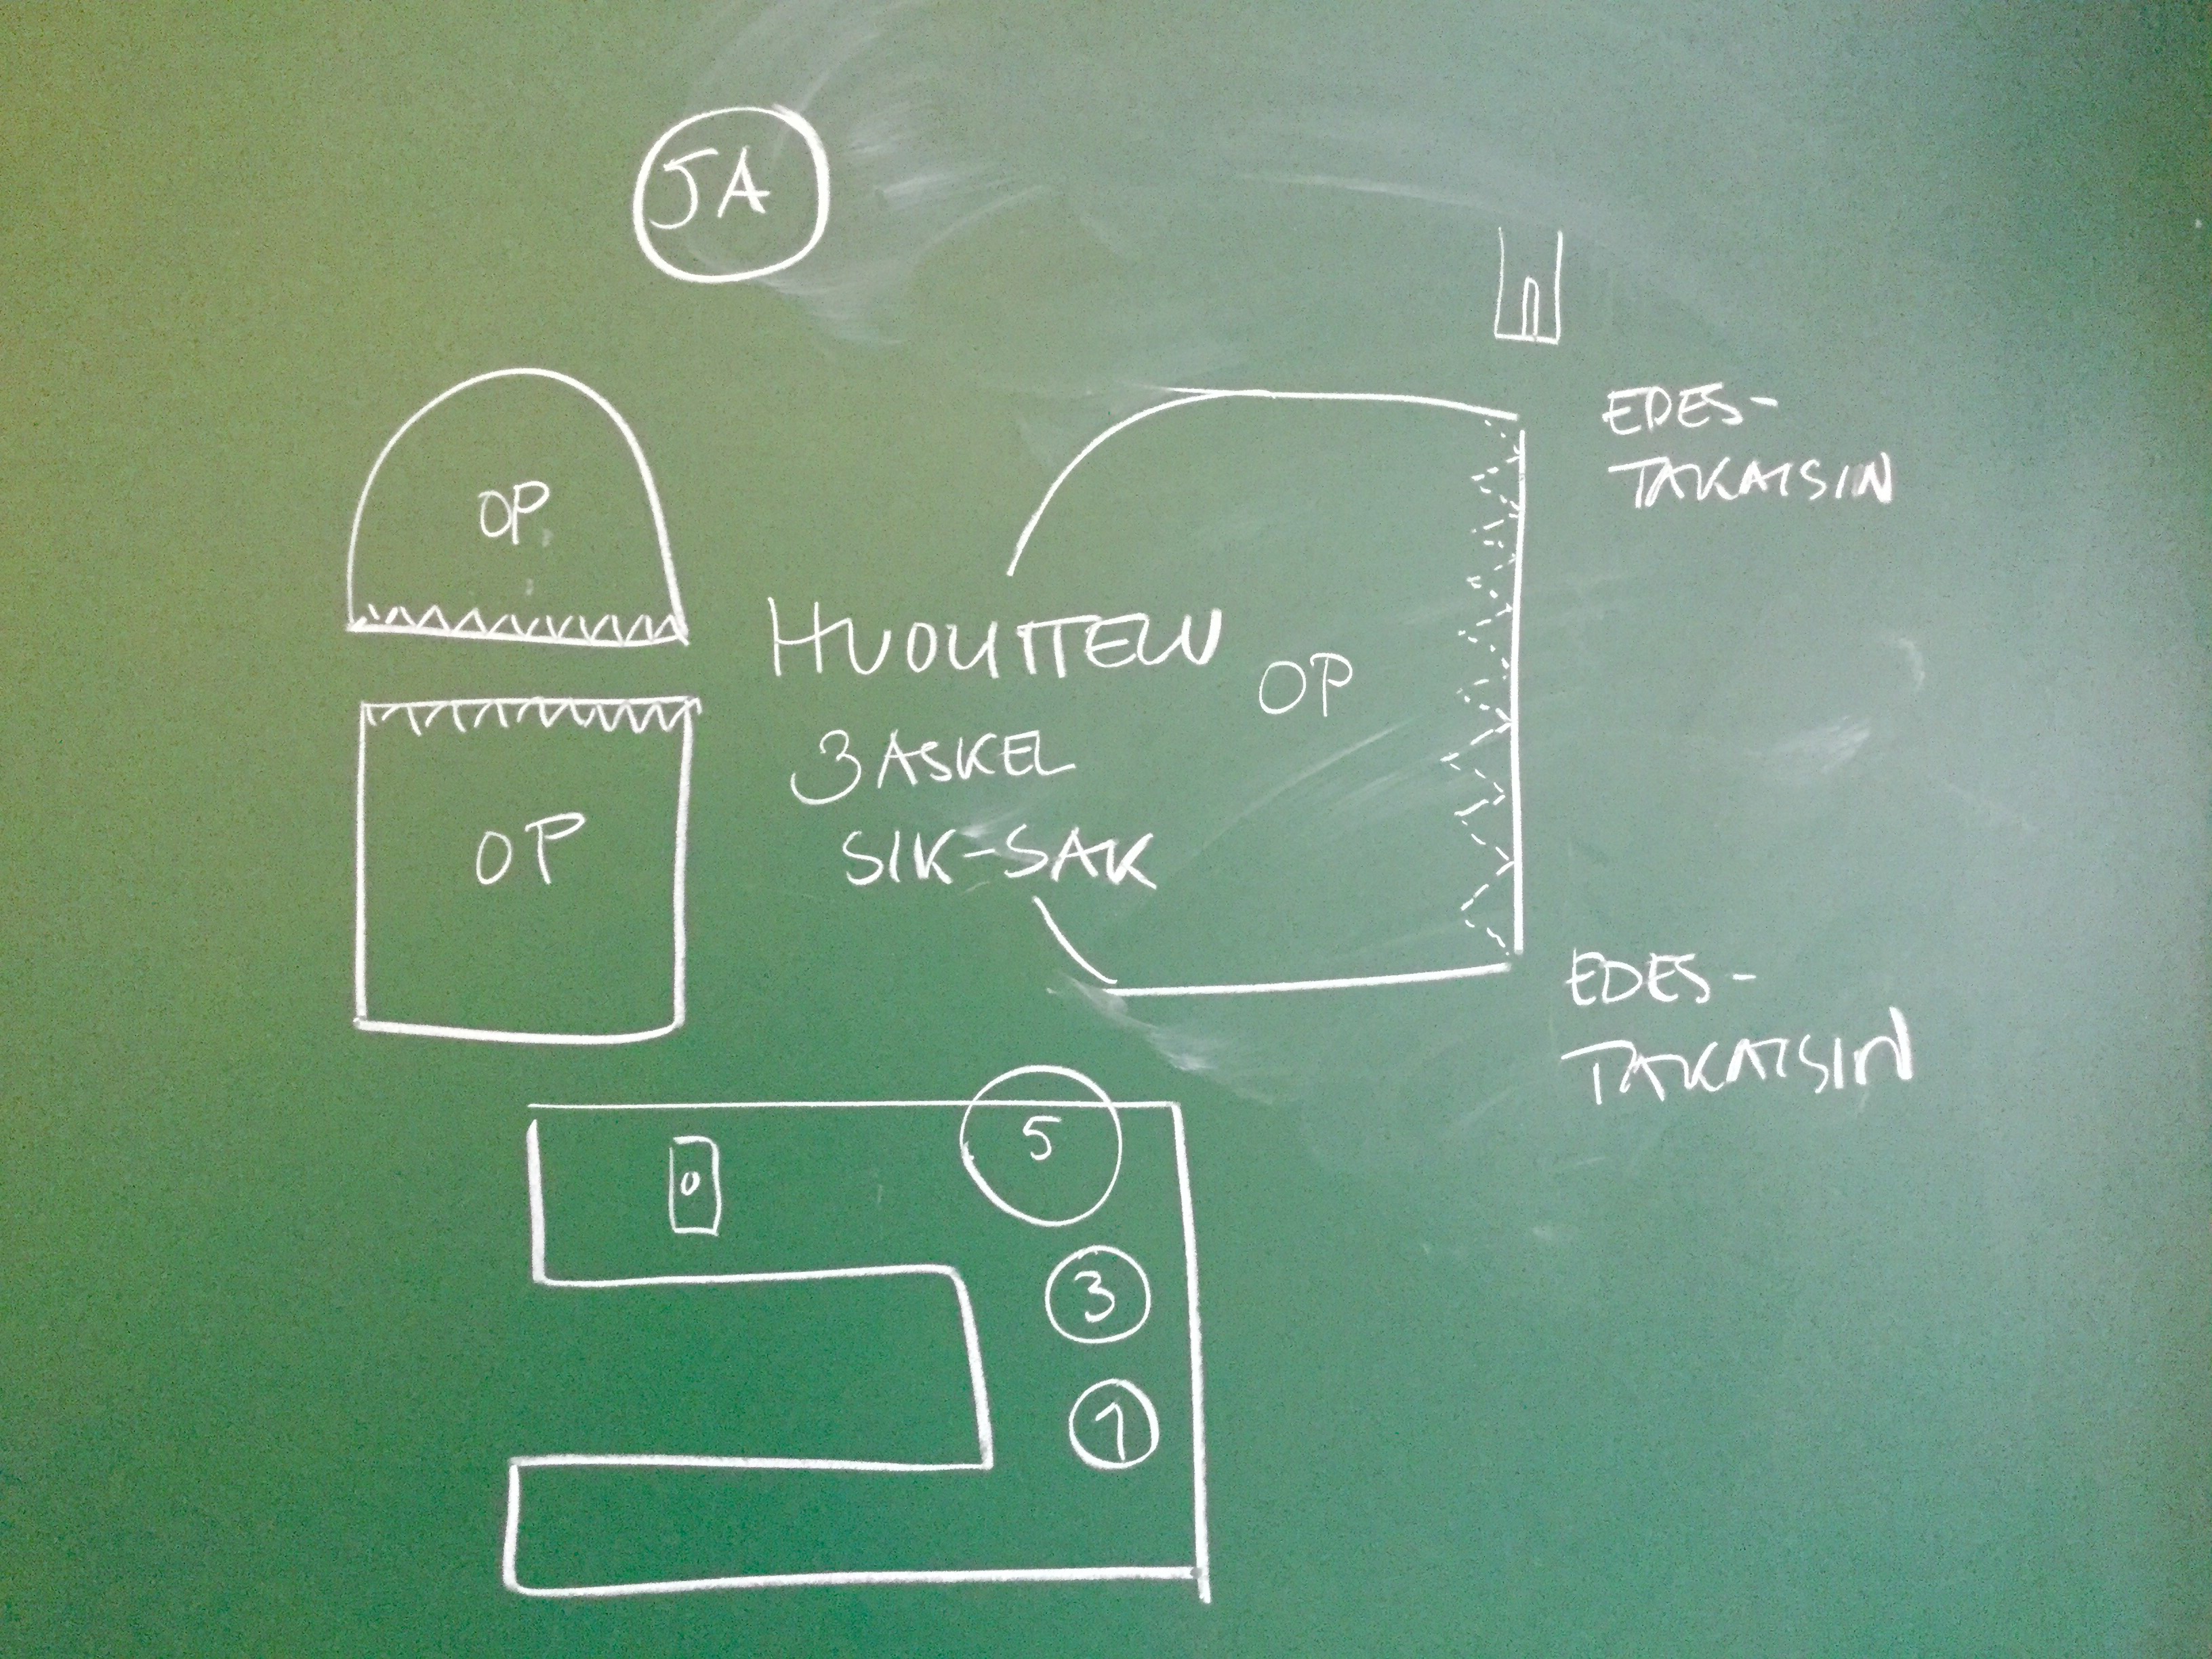 JA
OP
HUOLITTELU
3 ASKEL
SIK-SAK
OP
OP
EDES-
TAKAISIN
EDES-
TAKAISIN
0
5
3
1